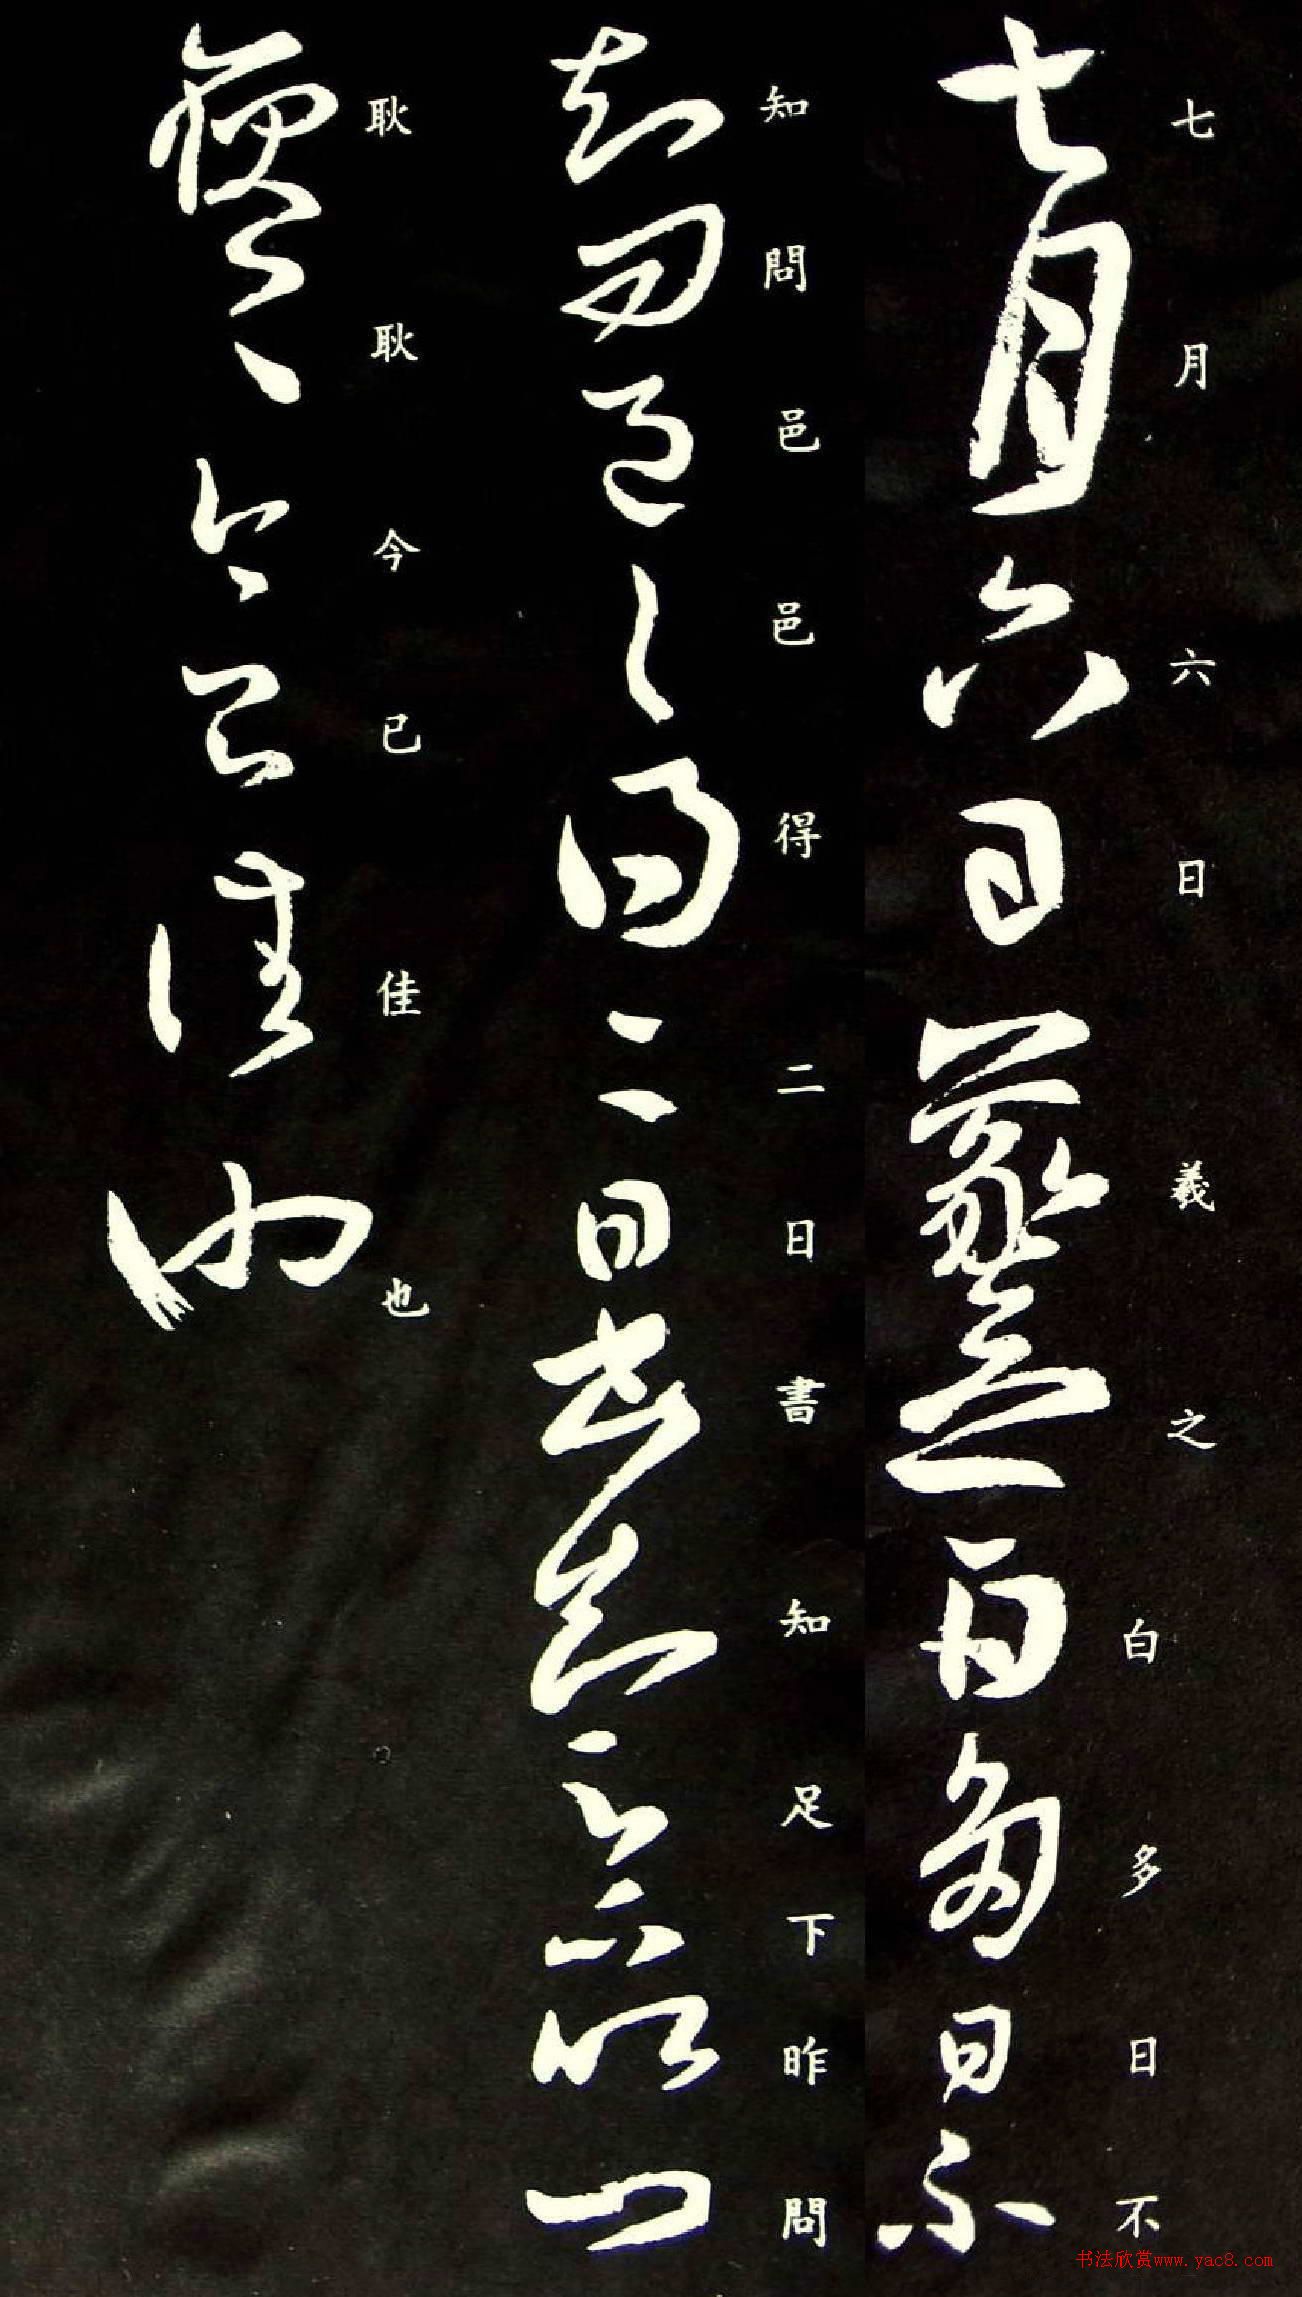 七月六日羲之白多日不
知問邑邑得二日書知足下昨問
耿耿今已佳也
书法欣赏www.yac8.com